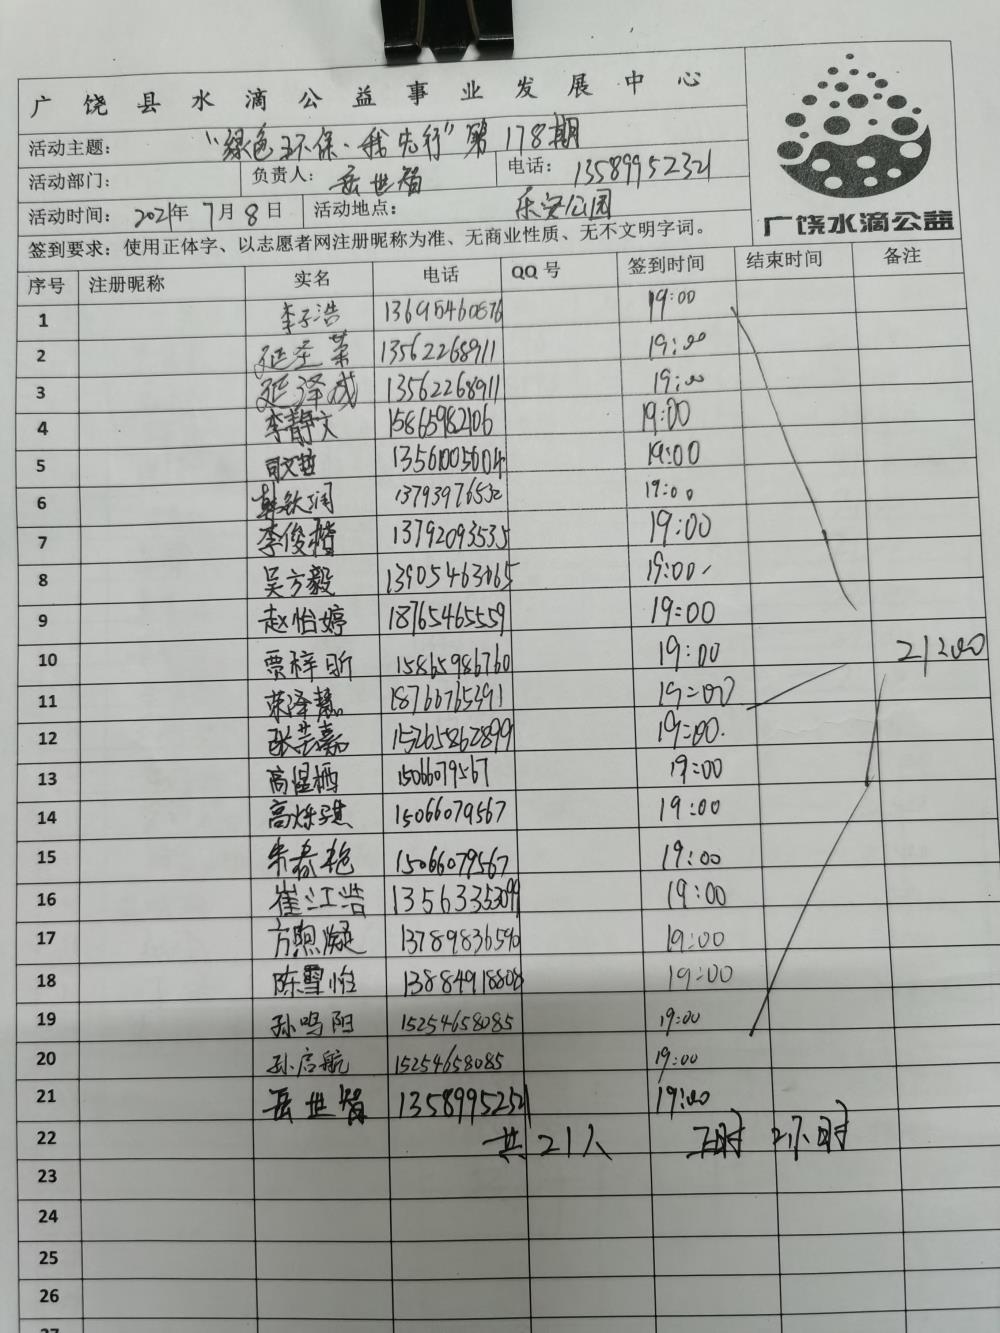 广饶县水滴公益事业发展中心
活动主题： "绿色环保·我先行"第178期
活动部门： 负责人： 岳世智 电话： 13589952321
活动时间： 2021年 7月8日 活动地点： 乐安公园
广饶水滴公益
签到要求：使用正体字、以志愿者网注册昵称为准、无商业性质、无不文明字词。
序号 注册昵称 实名 电话 QQ号 签到时间 结束时间 备注
1 李子浩 13695460876 19:00
2 延圣荣 13562268911 19:00
3 延泽成 13562268911 19:00
4 李静文 15865982106 19:00
5 司文哲 13561005604 19:00
6 韩钦润 13793976532 19:00
7 李俊楷 13792093535 19:00
8 吴方毅 13905463065 19:00
9 赵怡婷 18765465559 19:00
10 贾梓昕 15865986760 19:00 21:00
11 荣泽慧 18760765391 19:00
12 张芸嘉 15265862899 19:00
13 高煜栖 15066079567 19:00
14 高烁琪 15066079567 19:00
15 朱春艳 15066079567 19:00
16 崔江浩 13563353099 19:00
17 方煦凝 13789836590 19:00
18 陈雪怡 13884918808 19:00
19 孙鸣阳 15254658085 19:00
20 孙启航 15254658085 19:00
21 岳世智 13589952321 19:00
22 共21人 工时 2小时
23
24
25
26
27